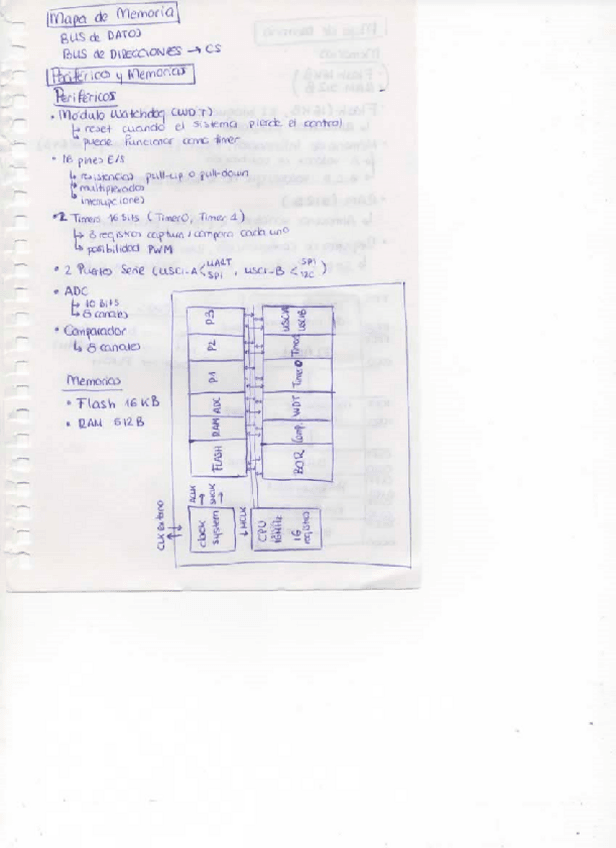 Mapa de Memoria
BUS de DATOS
BUS de DIRECCIONES → CS
Periféricos y Memorias
Periféricos
• Módulo Watchdog (WDT)
↳ reset cuando el sistema pierde el control
↳ puede funcionar como timer
• 16 pines E/S
↳ resistencias pull-up o pull-down
↳ multiplexados
↳ interrupciones
• 2 Timers 16 bits (Timer0, Timer1)
↳ 3 registros captura/compara cada uno
↳ posibilidad PWM
• 2 Puertos Serie (USCI-A < UART SPI, USCI-B < SPI I2C)
• ADC
↳ 10 bits
↳ 8 canales
• Comparador
↳ 8 canales
Memorias
• Flash 16 KB
• RAM 512B
FLASH RAM ADC P1 P2 P3
BOR Comp. WDT Timer0 Timer1 USCIA USCIB
CLK Externo
clock system
ACLK →
SMCLK →
↓ MCLK
CPU
16MHz
16 registros